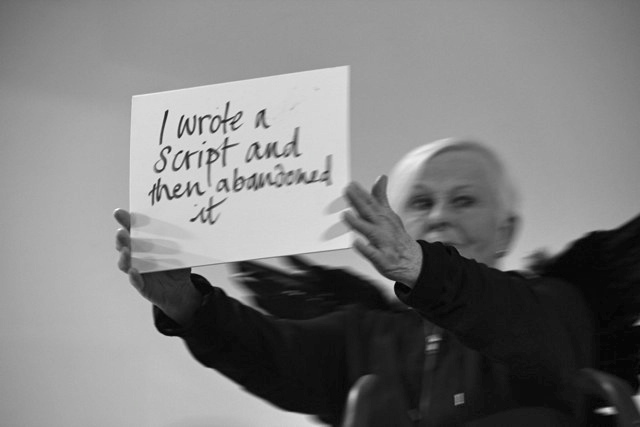 I wrote a
script and
then abandoned
it